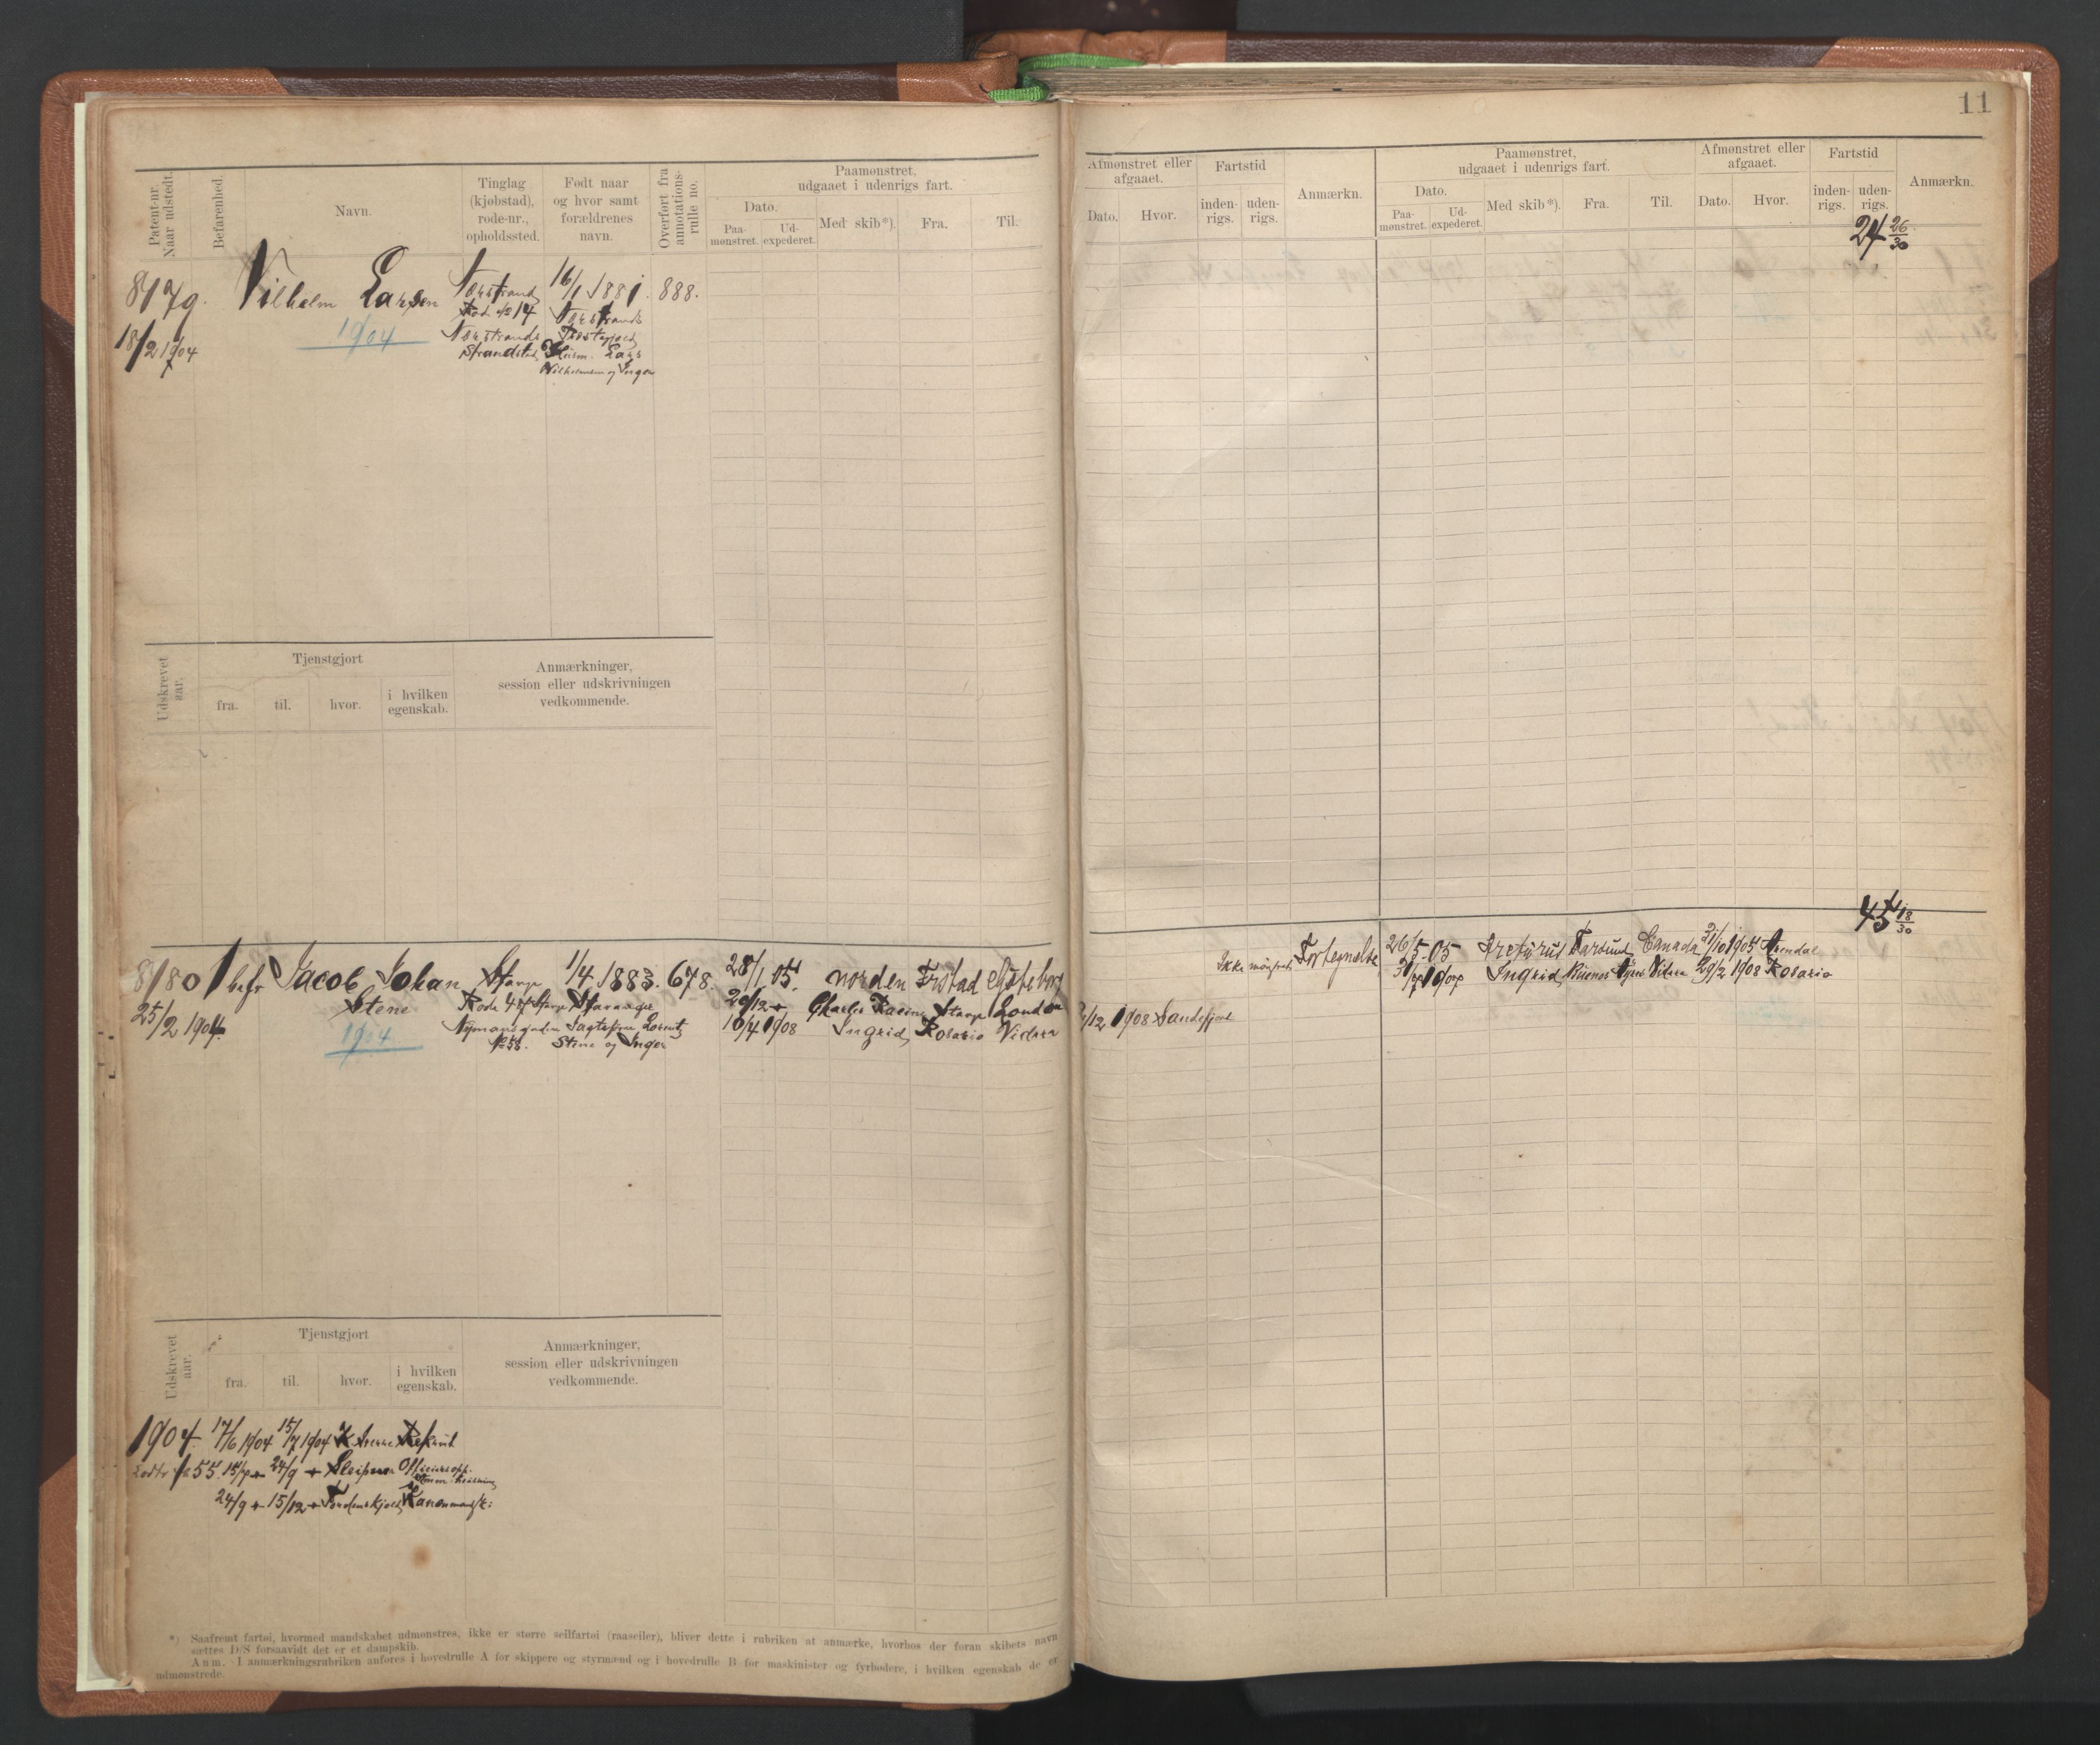 11
Patent-nr. Naar udstedt.
Befarenhed.
Navn.
Tinglag (kjøbstad), rode-nr., opholdssted.
Født naar og hvor samt forældrenes navn.
Overført fra annotationsrulle no.
Paamønstret, udgaaet i udenrigs fart.
Dato.
Paa-mønstret.
Ud-expederet.
Med skib*).
Fra.
Til.
Afmønstret eller afgaaet.
Dato.
Hvor.
Fartstid
inden-rigs.
uden-rigs.
Anmærkn.
Paamønstret, udgaaet i udenrigs fart.
Dato.
Paa-mønstret.
Ud-expederet.
Med skib*).
Fra.
Til.
Afmønstret eller afgaaet.
Dato.
Hvor.
Fartstid
inden-rigs.
uden-rigs.
Anmærkn.
24 26/30
8179. Vilhelm Larsen
18/2 1904
1904
Nerstrand
Rode No 14
Nerstrands
16/1 1881. 888.
Nerstrands
Lars
Vilhelmsen og Inger
Udskrevet aar.
Tjenstgjort
fra. til. hvor. i hvilken egenskab.
Anmærkninger, session eller udskrivningen vedkommende.
45 18/30
8180 1 befr Jacob Johan
Stene
25/2 1904
1904
Stavgr
Rode 47 Stavgr
1/4 1883. 678.
Stavanger
Stene og Inger
28/1 05. Norden Fristad Gøteborg
Charles Racine Stavgr London
10/4 1908 Ingrid Rosario
Ikke mønstret Fortegnelse
12 1908 Sandefjord
26/5-05 Arcturus Farsund Canada 21/10 1905 Arendal
Ingrid Buenos 29/2 1908 Rosario
Udskrevet aar.
Tjenstgjort
fra. til. hvor. i hvilken egenskab.
Anmærkninger, session eller udskrivningen vedkommende.
1904. 17/6 1904 15/7 1904 Rekrut
55. 24/9 Sleipner
24/9 15/12 Tordenskjold
*) Saafremt fartøi, hvormed mandskabet udmønstres, ikke er større seilfartøi (raaseiler), bliver dette i rubriken at anmærke, hvorhos der foran skibets navn
sættes D/S forsaavidt det er et dampskib.
Anm. I anmærkningsrubriken anføres i hovedrulle A for skippere og styrmænd og i hovedrulle B for maskinister og fyrbødere, i hvilken egenskab de er
udmønstrede.